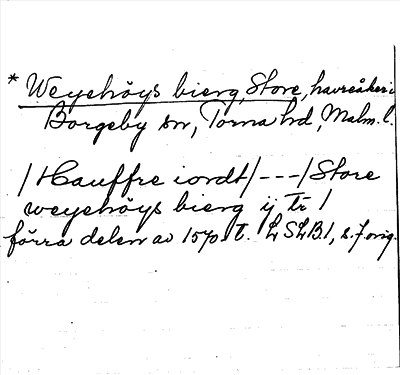 * Weyehöys bierg, Store, havreåker i
Borgeby sn, Torna hd, Malm. l.
/ Hauffre iordt / --- / Store
weyehöys bierg ij tr /
förra delen av 1570-t. LSLB.1, s. 7 orig.